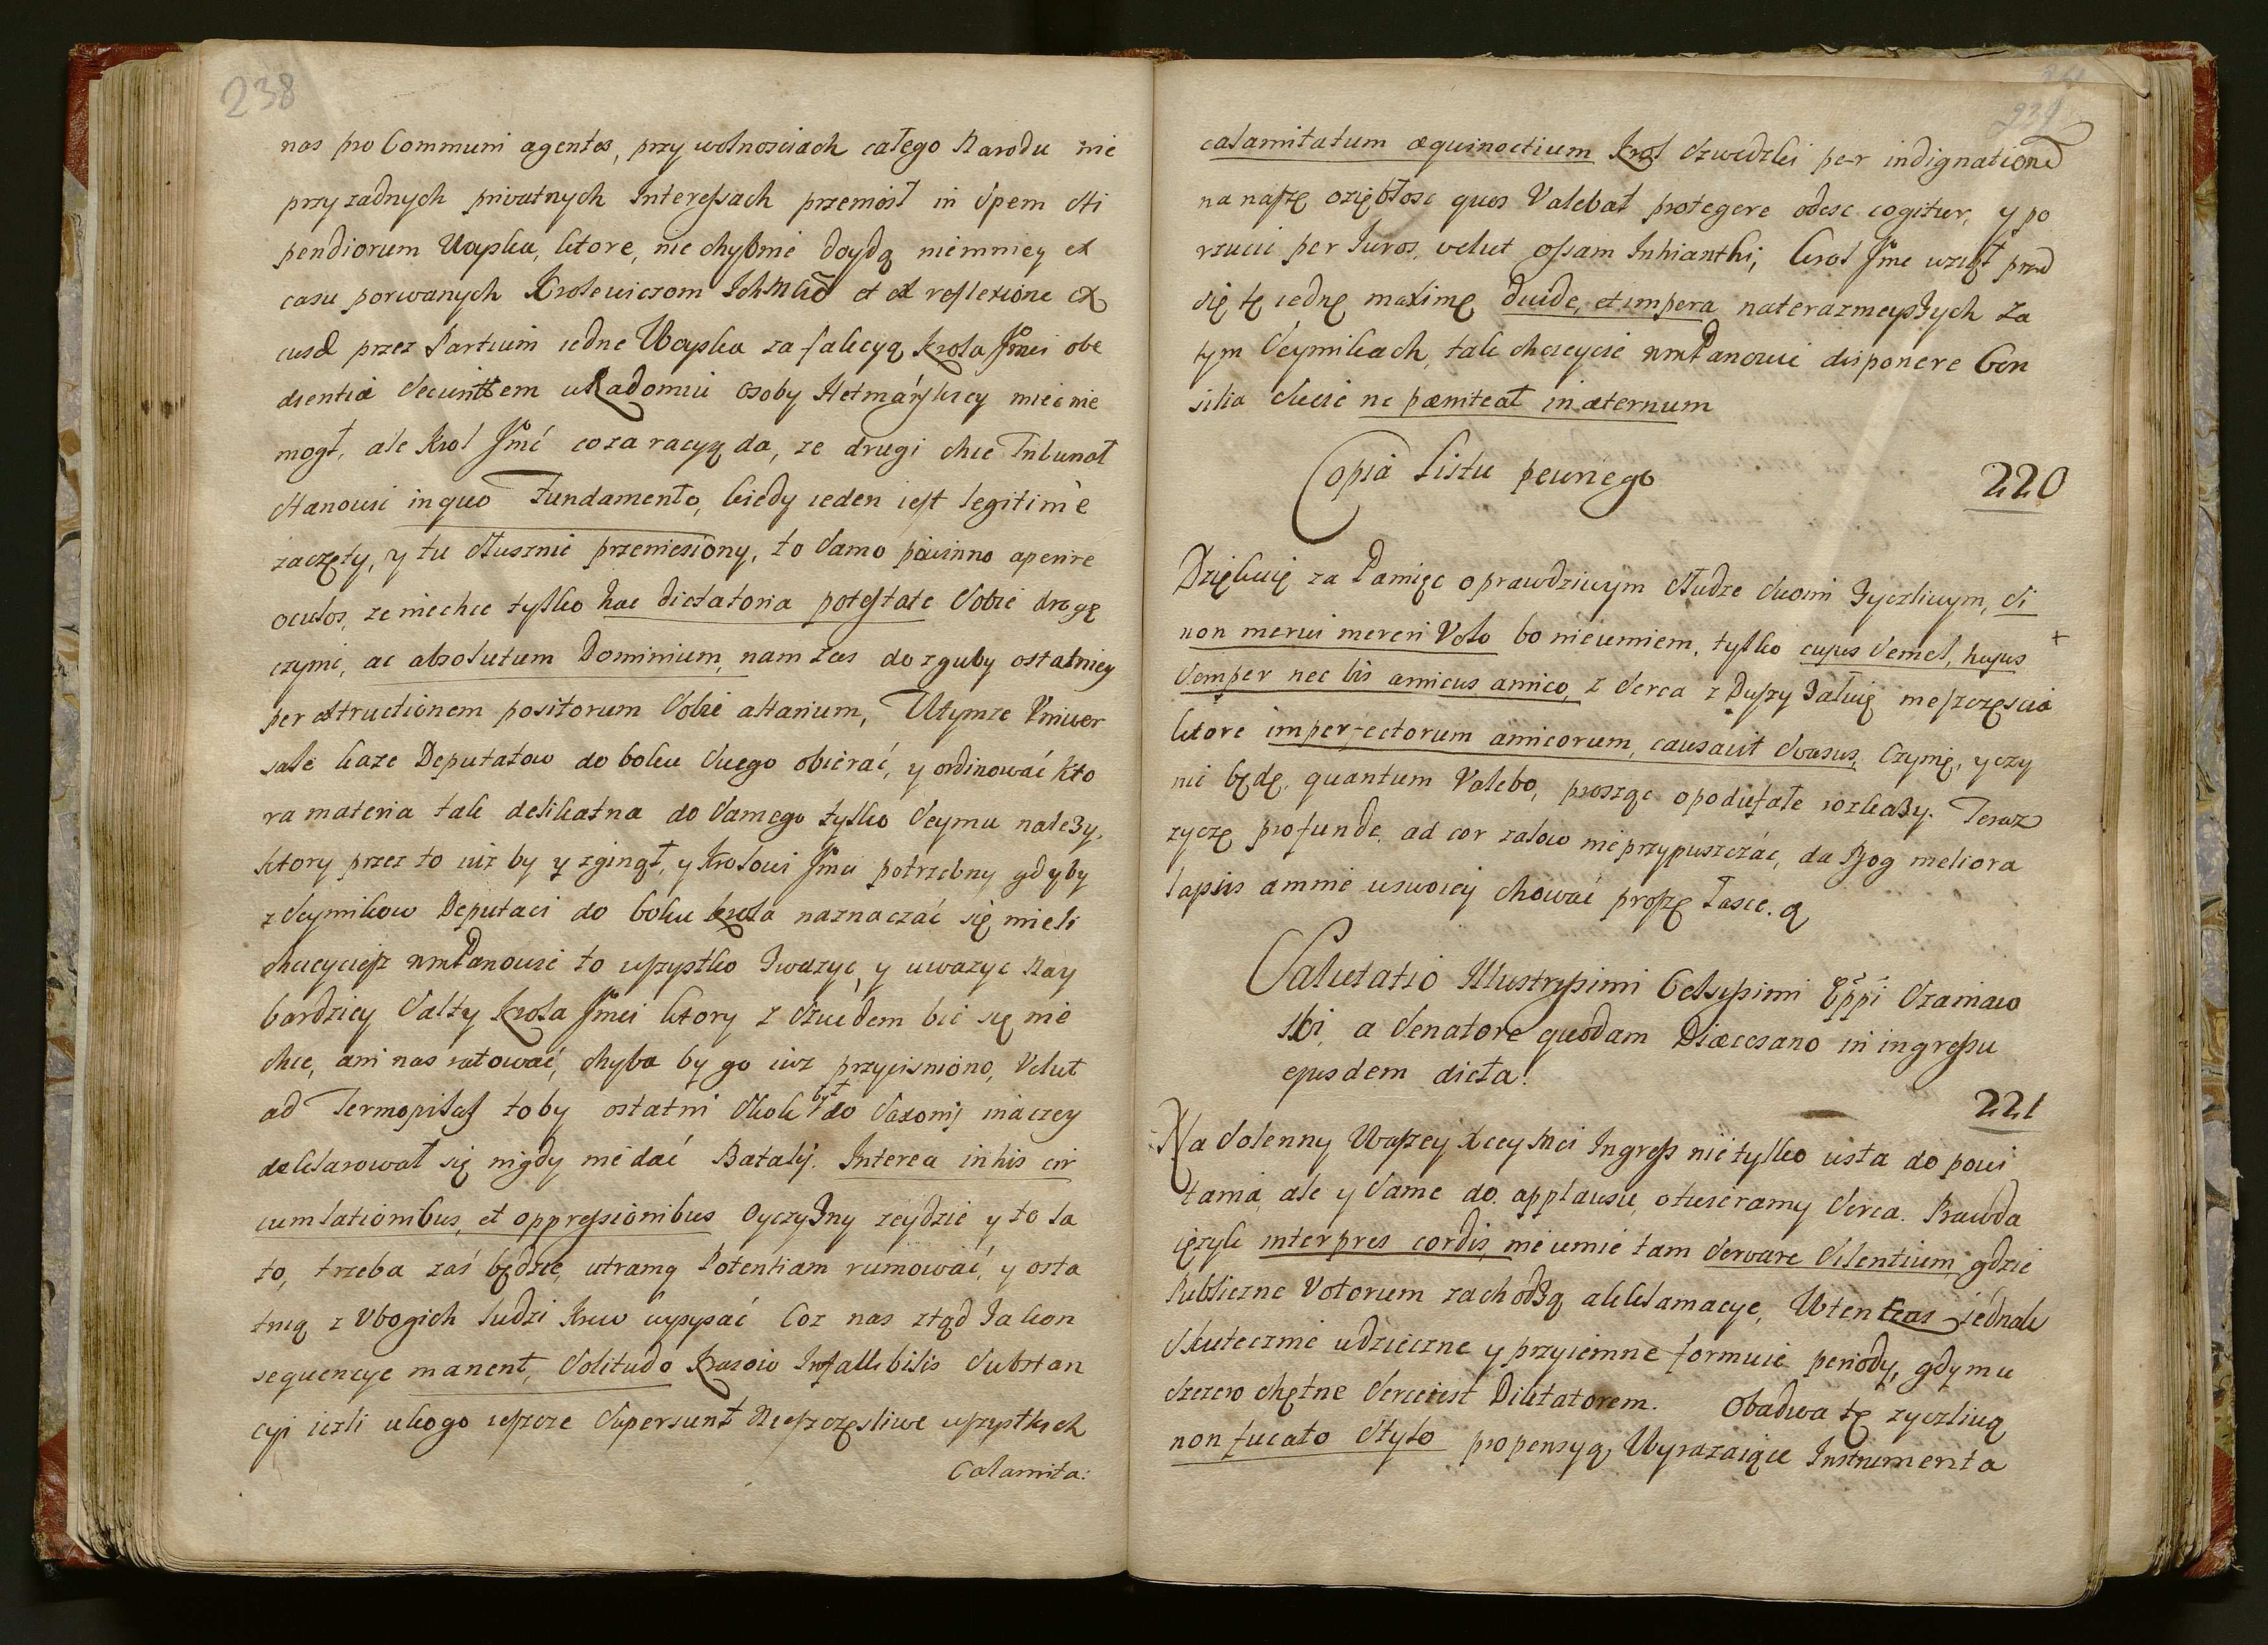 238
nas pro Communi agentes, przy wolnosciach całego Narodu nie
przy zadnych priwatnych Interessach przeniosł in Spem sti
pendiorum Woyska, ktore, nie chybnie doydą niemniey ex
casu porwanych Krolewiczom et ex reflexione
przez Partium iedne Woyska za fakcyą Krola Jmci obe
dientia w Radomiu osoby Hetmańskiey miec nie
mogł, ale Krol Jmć coza racyą da, ze drugi chce Tribunał
stanowic in quo Fundamento, kiedy ieden iest legitimè
zaczęty, y tu słusznie przeniesiony, to samo powinno aperire
oculos, ze niechce tylko hac dictatoria potestate sobie drogę
czynic, ac absolutum Dominium, nam zas do zguby ostatniey
per structionem positorum sobie altarium, Wtymze Vniwer
sale kaze Deputatow do boku swego obierać, y ordinować kto
ra materia tak delikatna do samego tylko Seymu nalezy,
ktory przez to iuz by y zginął, y Krolowi Jmci potrzebny gdyby
z Seymikow Deputaci do boku krola naznaczać się mieli
chcieyciesz wmPanowie to wszystko zwazyc, y uwazyc Nay
bardziey Salty Krola Jmci ktory z Szwedem bic się nie
chce, ani nas ratować, chyba by go iuz przycisniono, Velut
ad Termopilas toby ostatni skok był do Saxonij inaczey
deklarował się nigdy nie dać Batalij. Interea in his cir
cumlationibus, et oppressionibus Oyczyzny zeydzie y to la
to, trzeba zaś będzie, utramq Potentiam rumować, y osta
tnią z Vbogich ludzi Krew wysysać Coz nas ztąd za kon
sequencye manent, Solitudo Krasow Infallibilis Substan
cyi iezli ukogo ieszcze Supersunt Nieszczęsliwe wszystkich
Calamita:
239
calamitatum æquinoctium Krol Szwedzki per indignationē
na naszę oziębłosc quos Valebat protegere odesc cogitur, y po
rzucic per Iuros, velut ossam Inhianthi, krol Jmc wziął przed
się tę iednę maximę divide, et impera nateraznieyszych Za
tym Seymikach, tak chcieycie wmPanowie disponere Con
silia Swoie ne pæniteat in æternum
Copia Listu pewnego
220
Dziękuię za Pamięc o prawdziwym słudze swoim Zyczliwym, si
non merui mereri Volo bo nieumiem, tylko cujus semel, hujus +
semper nec bis amicus amico, z serca z Duszy Załuię nieszczęscia
ktore imperfectorum amicorum, causavit Casus, Czynię, y czy
nic będę, quantum Valebo, prosząc o poduffałe rozkazy. Teraz
zyczę profunde, ad cor zalow nieprzypuszczać, da Bog meliora
lapsis a mnie wswoiey chować proszę Łasce.
Salutatio Illustrissimi Celsissimi Eppi Craniow
ski, a Senatore quodam Diæcesano in ingressu
ejusdem dicta.
221
Na Solenny Waszey Xcey Mci Ingress nietylko usta do powi
tania, ale y same do applausu, otwieramy serca. Prawda
ięzyk interpres cordis, nieumie tam servare silentium, gdzie
Publiczne Votorum zachodzą akklamacye, Wten czas iednak
skutecznie wdzieczne y przyiemne formuie periody, gdy mu
szczero chętne serce iest Dicktatorem. Obadwa tę zyczliwą
non fucato stylo propensyą, Wyrazaiące Instrumenta